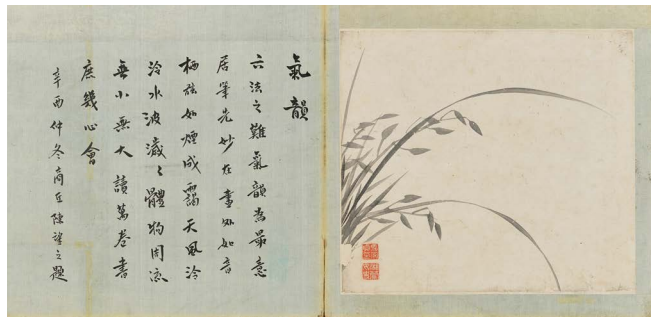 氣韻
六法之難氣韻為最意
居筆先妙在畫外如音
栖弦如煙成靄天風泠
泠水波瀲々體物周流
無小無大讀萬卷書
庶幾心會
辛酉仲冬商丘陳望之題